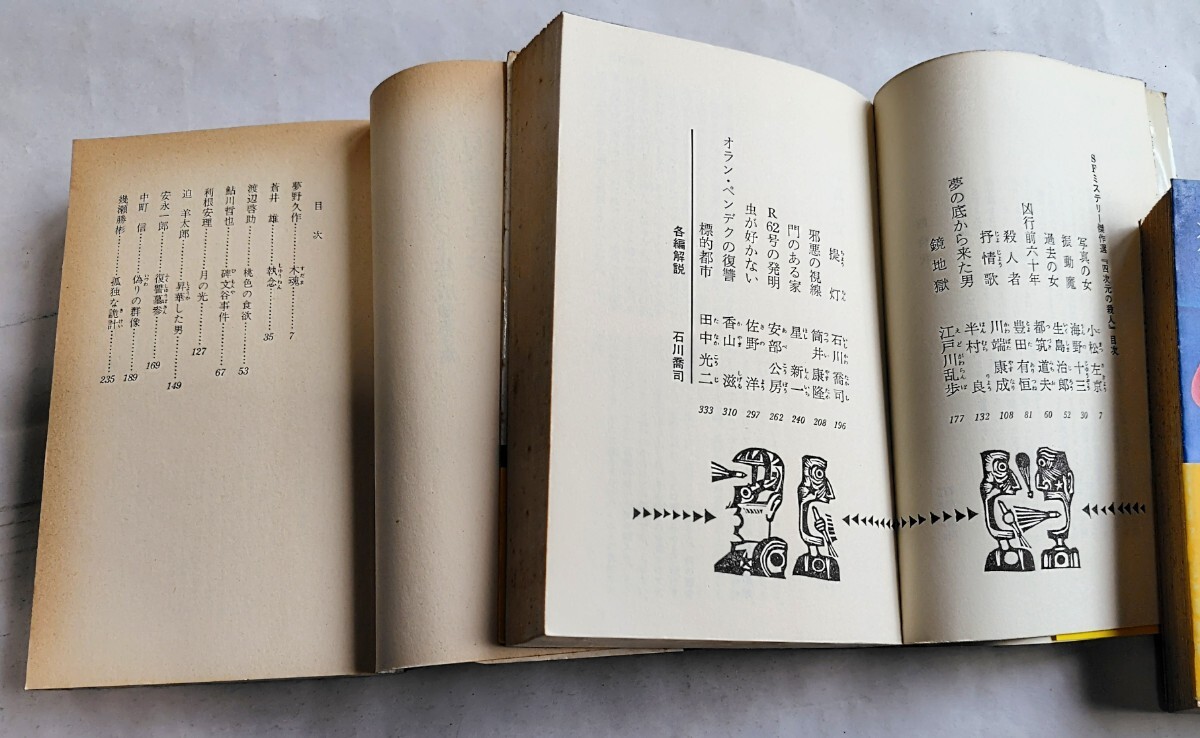 SFミステリー傑作選『四次元の殺人』目次
写真の女 小松左京 7
振動魔 海野十三 30
過去の女 生島治郎 52
凶行前六十年 都筑道夫 60
殺人者 豊田有恒 81
抒情歌 川端康成 108
夢の底から来た男 半村良 132
鏡地獄 江戸川乱歩 177
提灯 石川喬司 196
邪悪の視線 筒井康隆 208
門のある家 星新一 240
R62号の発明 安部公房 262
虫が好かない 佐野洋 297
オラン・ペンデクの復讐 香山滋 310
標的都市 田中光二 333
各編解説 石川喬司
目次
夢野久作……木魂……7
蒼井雄……執念……35
渡辺啓助……桃色の食欲……53
鮎川哲也……碑文谷事件……67
利根安理……月の光……127
迫羊太郎……昇華した男……149
安永一郎……復讐墓参……169
中町信……偽りの群像……189
幾瀬勝彬……孤独な詭計……235